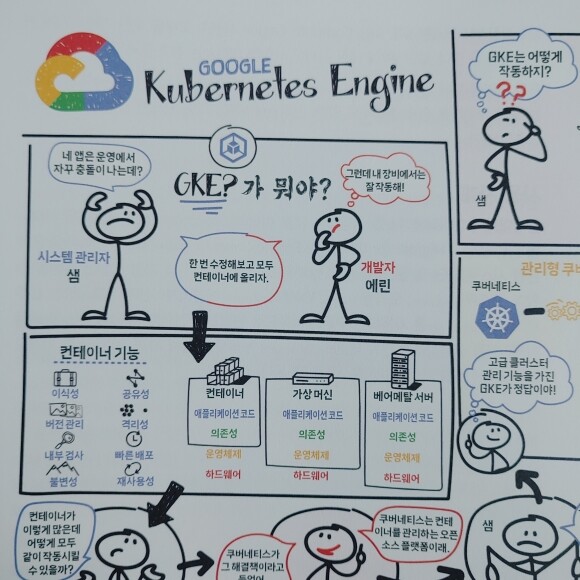 GOOGLE
Kubernetes Engine
GKE는 어떻게
작동하지?
??
샘
네 앱은 운영에서
자꾸 충돌이 나는데?
GKE? 가 뭐야?
그런데 내 장비에서는
잘 작동해!
시스템 관리자
샘
한 번 수정해보고 모두
컨테이너에 올리자.
개발자
에린
관리형 쿠버
쿠버네티스
고급 클러스터
관리 기능을 가진
GKE가 정답이야!
컨테이너 기능
이식성
공유성
버전 관리
격리성
내부 검사
빠른 배포
불변성
재사용성
컨테이너
애플리케이션 코드
의존성
운영체제
하드웨어
가상 머신
애플리케이션 코드
의존성
운영체제
하드웨어
베어메탈 서버
애플리케이션 코드
의존성
운영체제
하드웨어
컨테이너가
이렇게 많은데
어떻게 모두
같이 작동시킬
수 있을까?
쿠버네티스가
그 해결책이라고
들었어
쿠버네티스는 컨테
이너를 관리하는 오픈
소스 플랫폼이래.
샘